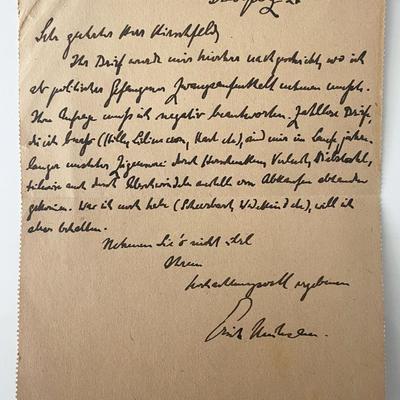 Sehr geehrter Herr Hirschfeld,
Ihr Brief wurde mir hierher nachgeschickt, wo ich
als politischer Gefangener Zwangsaufenthalt nehmen musste.
Ihre Anfrage muss ich negativ beantworten. Zahllose Briefe,
die ich besass (Hille, Liliencron, Hart etc), sind mir im Laufe jahre-
langer unsteter Zigeunerei durch Verlust, Diebstahl,
teilweise auch durch von Abkaufen abhanden
gekommen. Was ich noch habe (Scheerbart, Wedekind etc), will ich
aber behalten.
Nehmen Sie's nicht übel
Ihrem
hochachtungsvoll ergebenen
Erich Mühsam.